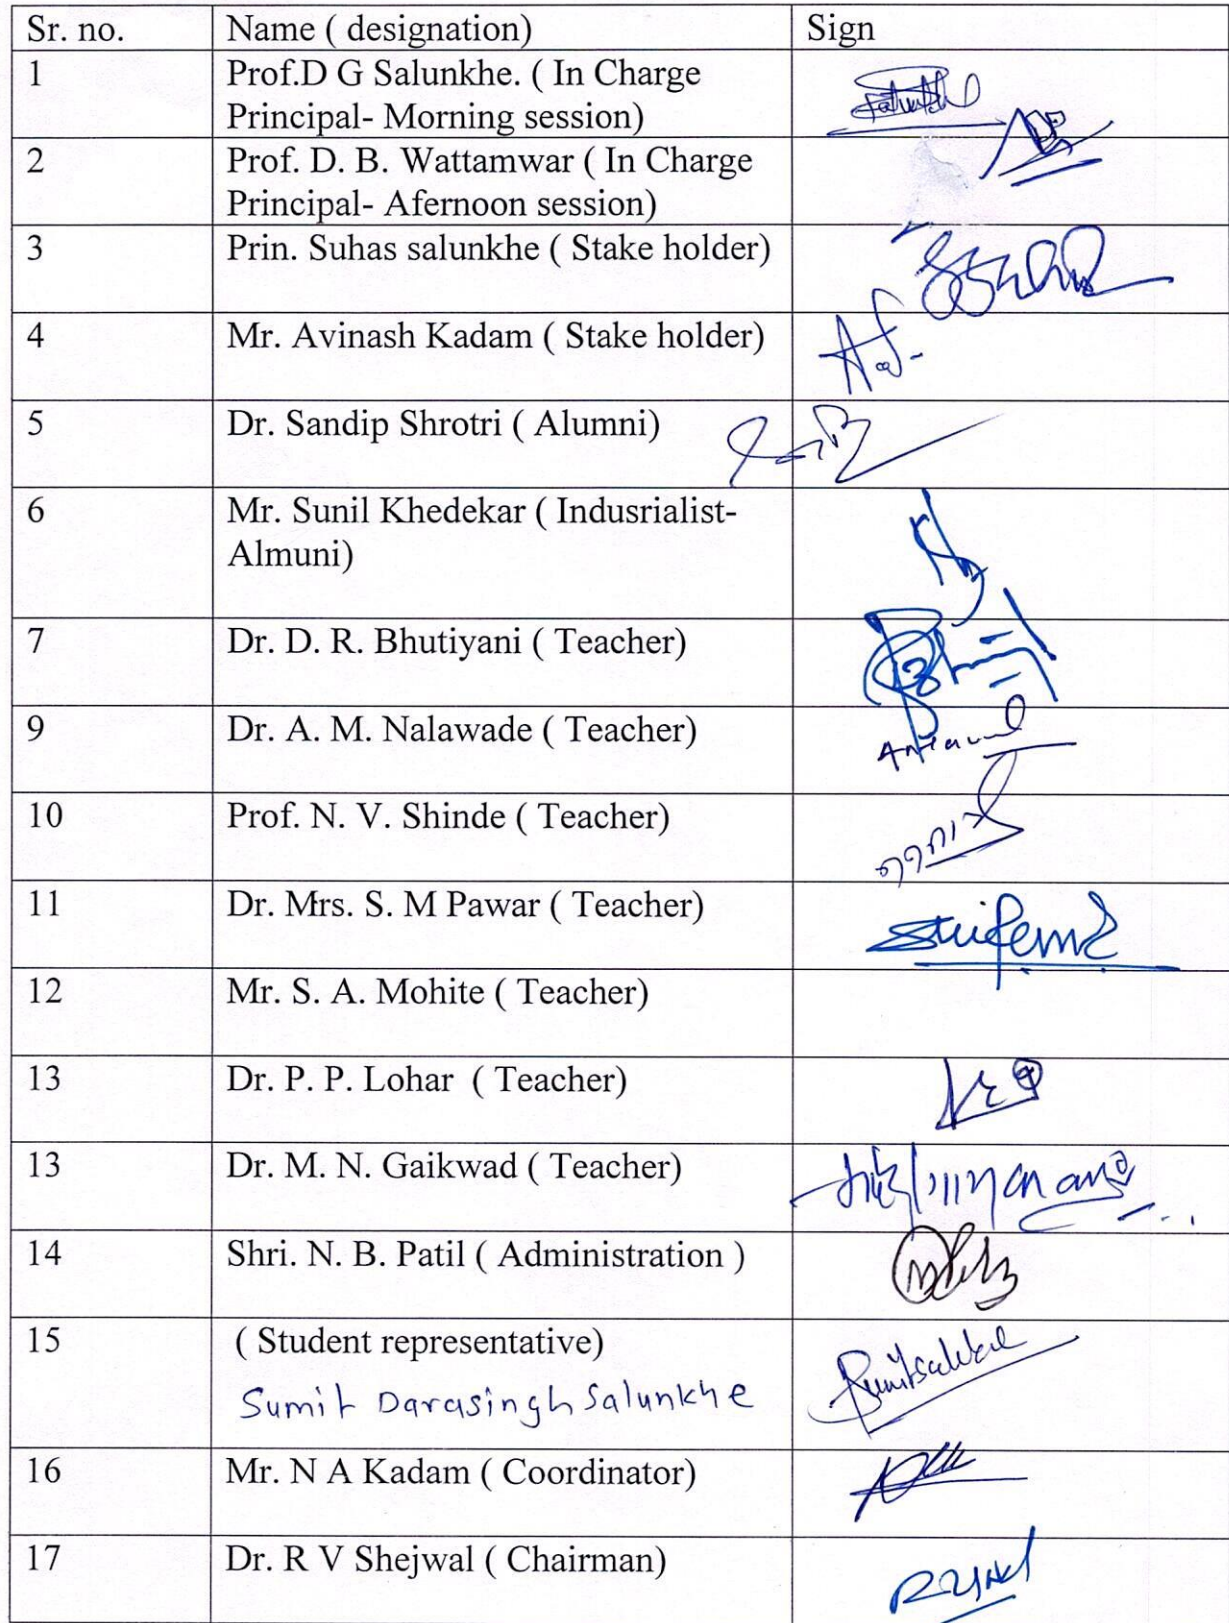 Sr. no. Name ( designation) Sign
1 Prof.D G Salunkhe. ( In Charge
Principal- Morning session)
2 Prof. D. B. Wattamwar ( In Charge
Principal- Afernoon session)
3 Prin. Suhas salunkhe ( Stake holder)
4 Mr. Avinash Kadam ( Stake holder)
5 Dr. Sandip Shrotri ( Alumni)
6 Mr. Sunil Khedekar ( Indusrialist-
Almuni)
7 Dr. D. R. Bhutiyani ( Teacher)
9 Dr. A. M. Nalawade ( Teacher)
10 Prof. N. V. Shinde ( Teacher)
11 Dr. Mrs. S. M Pawar ( Teacher)
12 Mr. S. A. Mohite ( Teacher)
13 Dr. P. P. Lohar ( Teacher)
13 Dr. M. N. Gaikwad ( Teacher)
14 Shri. N. B. Patil ( Administration )
15 ( Student representative)
Sumit Darasingh Salunkhe
16 Mr. N A Kadam ( Coordinator)
17 Dr. R V Shejwal ( Chairman)